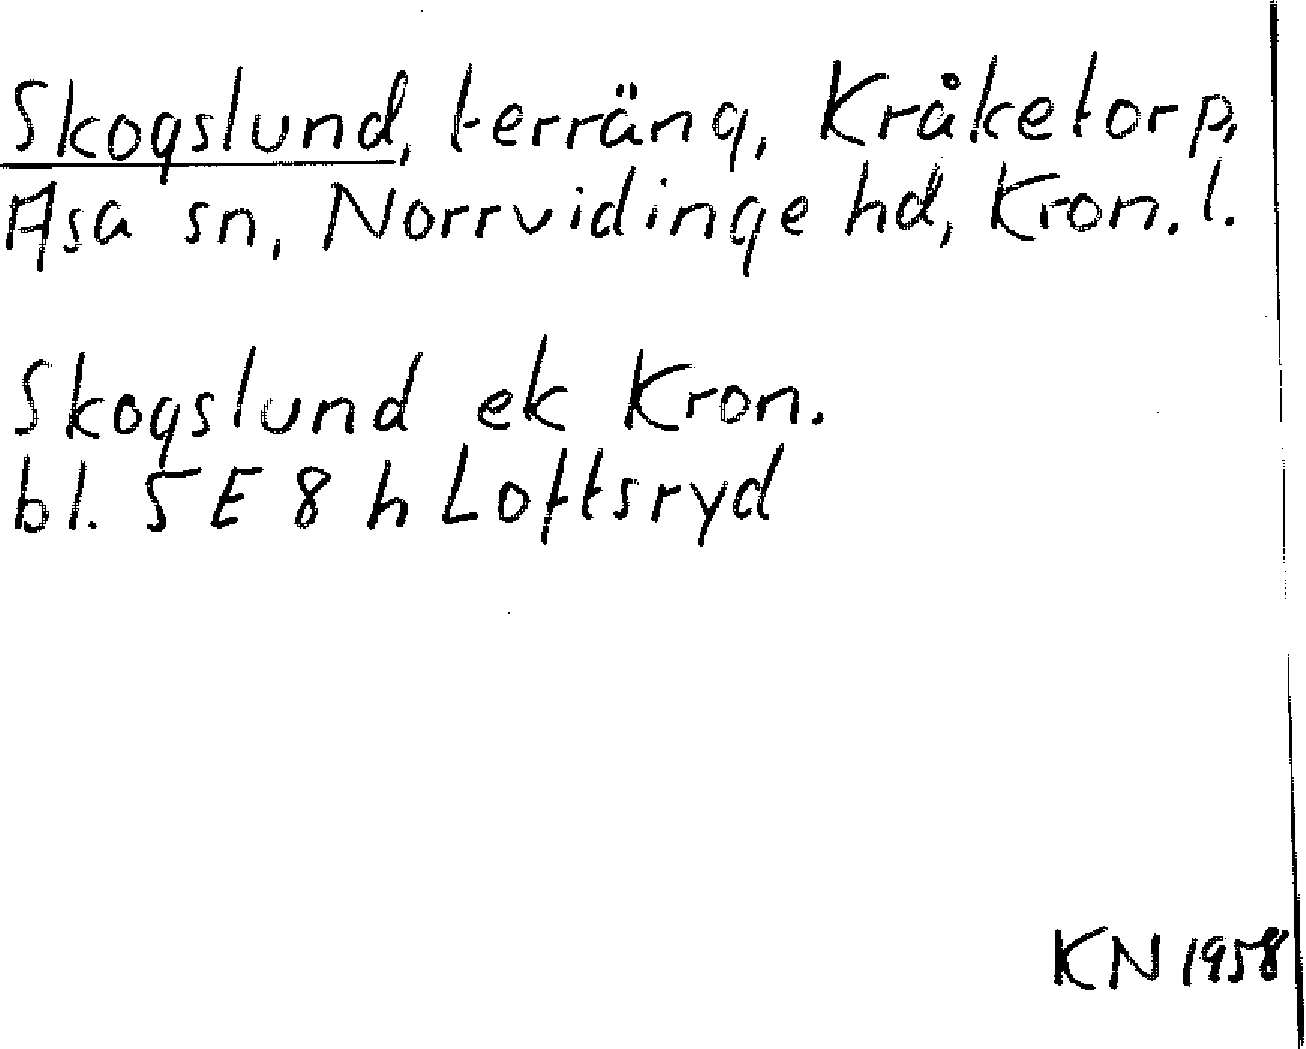 Skogslund, terräng, Kråketorp,
Asa sn, Norrvidinge hd, Kron. l.
Skogslund ek Kron.
bl. 5 E 8 h Loftsryd
KN 1958